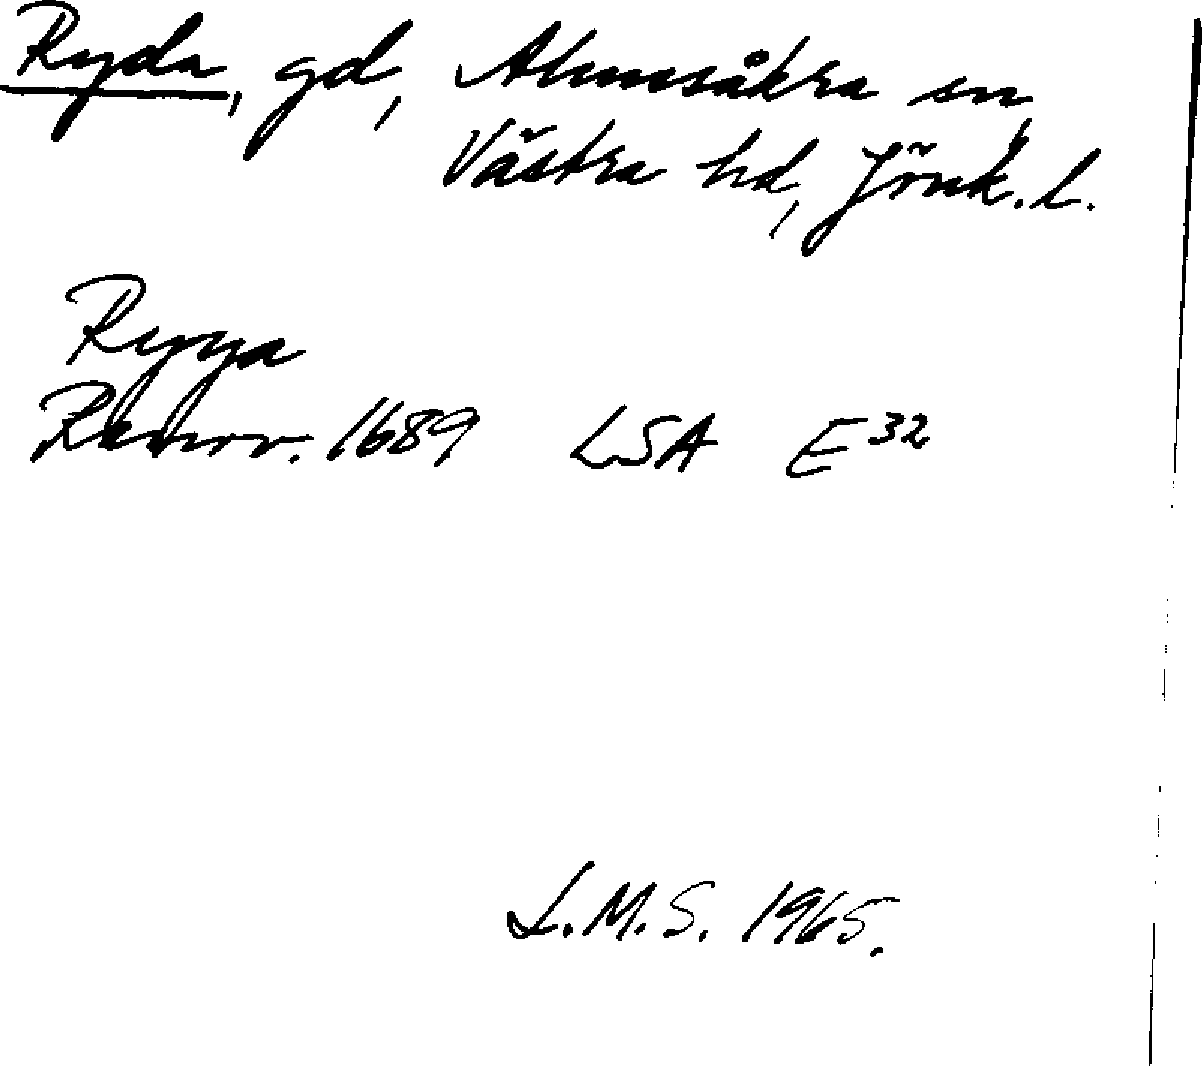 Ryda, gd, Almesåkra sn,
Västra hd, Jönk. l.
Ryya
Renov. 1689 LSA E32
L.M.S. 1965.